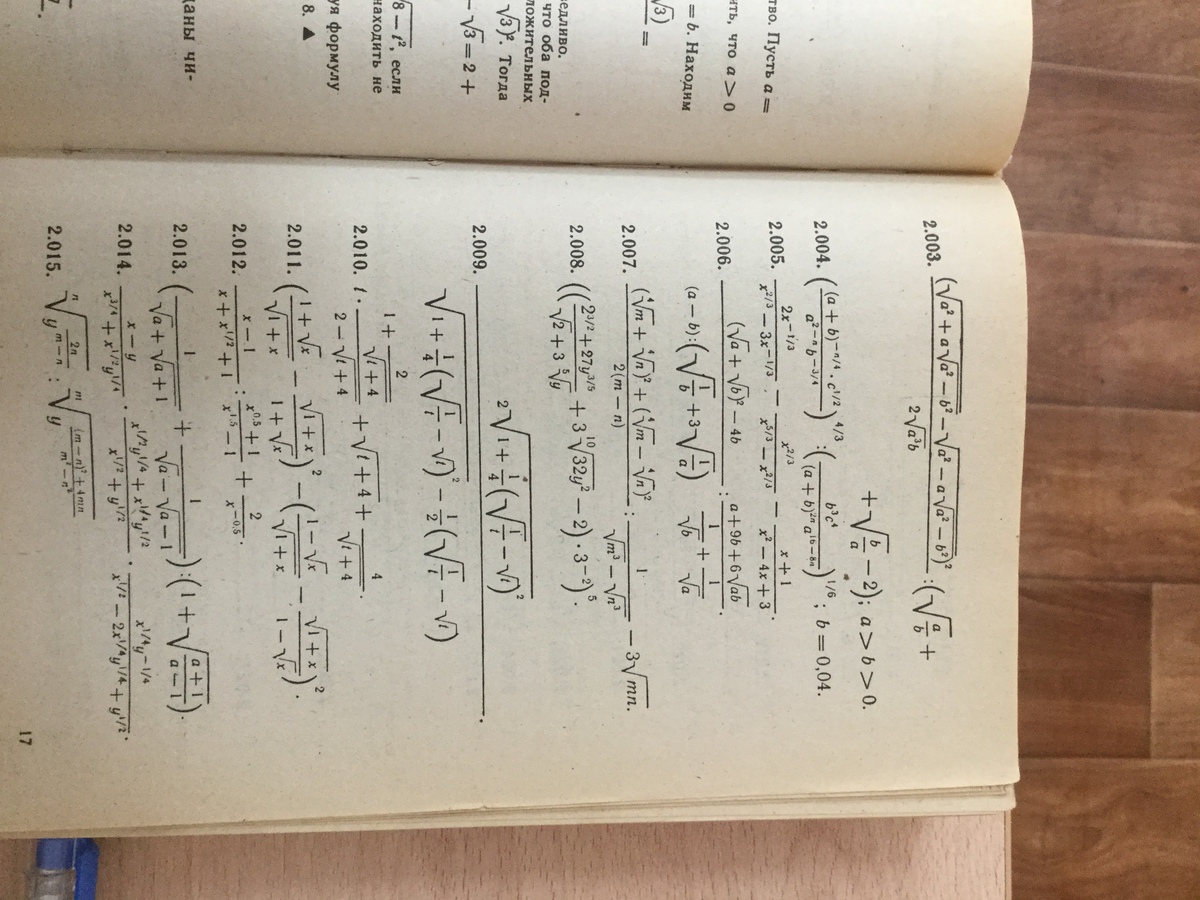 тво. Пусть a =
ить, что a > 0
= b. Находим
√3) =
едливо.
что оба под-
ложительных
√3)². Тогда
− √3 = 2 +
√8 − t², если
находить не
уя формулу
8. ▲
даны чи-
2.003. (√(a² + a√(a² − b²)) − √(a² − a√(a² − b²)))² / (2√(a³b)) : (√(a/b) +
+ √(b/a) − 2); a > b > 0.
2.004. ((a + b)^(−n/4) · c^(1/2) / (a^(2−n) b^(−3/4)))^(4/3) : (b³c⁴ / ((a + b)^(2n) a^(16−8n)))^(1/6); b = 0,04.
2.005. 2x^(−1/3) / (x^(2/3) − 3x^(−1/3)) − x^(2/3) / (x^(5/3) − x^(2/3)) − (x + 1) / (x² − 4x + 3).
2.006. ((√a + √b)² − 4b) / ((a − b) : (√(1/b) + 3√(1/a))) : (a + 9b + 6√(ab)) / (1/√b + 1/√a).
2.007. ((⁴√m + ⁴√n)² + (⁴√m − ⁴√n)²) / (2(m − n)) : 1 / (√m³ − √n³) − 3√(mn).
2.008. (((2^(3/2) + 27y^(3/5)) / (√2 + 3 ⁵√y) + 3 ¹⁰√(32y²) − 2) · 3^(−2))⁵.
2.009. 2√(1 + 1/4 (√(1/t) − √t)²) / (√(1 + 1/4 (√(1/t) − √t)²) − 1/2 (√(1/t) − √t)).
2.010. t · (1 + 2/√(t + 4)) / (2 − √(t + 4)) + √(t + 4) + 4/√(t + 4).
2.011. ((1 + √x)/√(1 + x) − √(1 + x)/(1 + √x))² − ((1 − √x)/√(1 + x) − √(1 + x)/(1 − √x))².
2.012. (x − 1)/(x + x^(1/2) + 1) : (x^(0,5) + 1)/(x^(1,5) − 1) + 2/x^(−0,5).
2.013. (1/(√a + √(a + 1)) + 1/(√a − √(a − 1))) : (1 + √((a + 1)/(a − 1))).
2.014. (x − y)/(x^(3/4) + x^(1/2)y^(1/4)) · (x^(1/2)y^(1/4) + x^(1/4)y^(1/2))/(x^(1/2) + y^(1/2)) · x^(1/4)y^(−1/4)/(x^(1/2) − 2x^(1/4)y^(1/4) + y^(1/2)).
2.015.
17